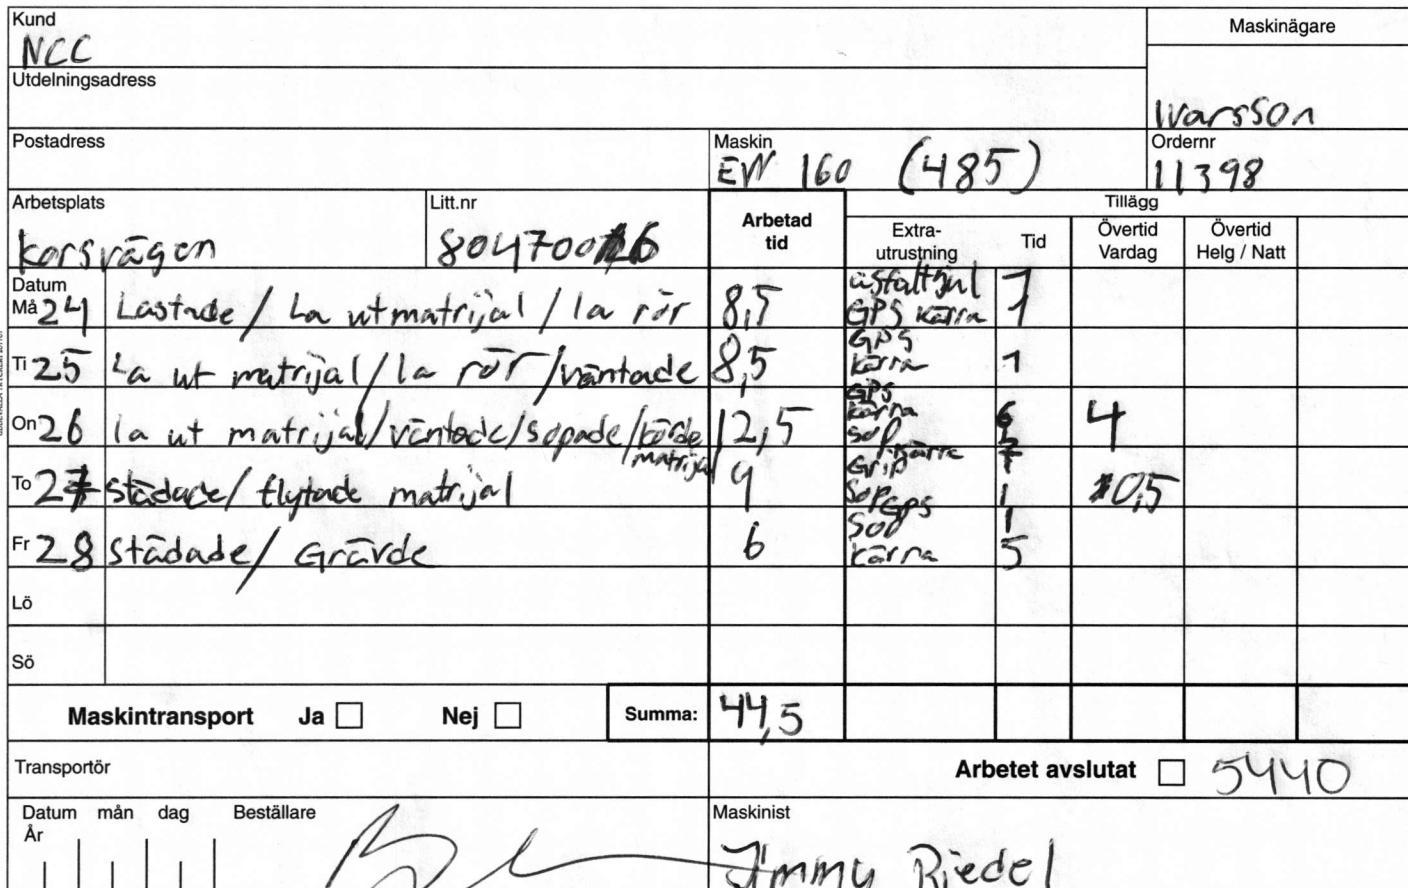 Kund
Maskinägare
NCC
Utdelningsadress
Ivarsson
Postadress
Maskin
EW 160 (485)
Ordernr
11398
Arbetsplats
Korsvägen
Litt.nr
Arbetad tid
Tillägg
Extra-utrustning
Tid
Övertid Vardag
Övertid Helg / Natt
Datum
Må 24 Lastade / La ut matrijal / la rör 8,5 asfalthjul 1
GPS kärra 1
Ti 25 La ut matrijal / la rör / väntade 8,5 GPS kärra 1
On 26 la ut matrijal / väntade / sopade / körde matrijal 12,5 GPS kärra 6 4
Sop
To 27 städade / flytade matrijal 9 Grip kärra 7 0,5
Sop GPS 1
Fr 28 Städade / Grävde 6 Sop 1
kärra 5
Lö
Sö
Maskintransport Ja Nej Summa: 44,5
Transportör
Arbetet avslutat 5440
Datum mån dag Beställare Maskinist
År
Jimmy Riedel